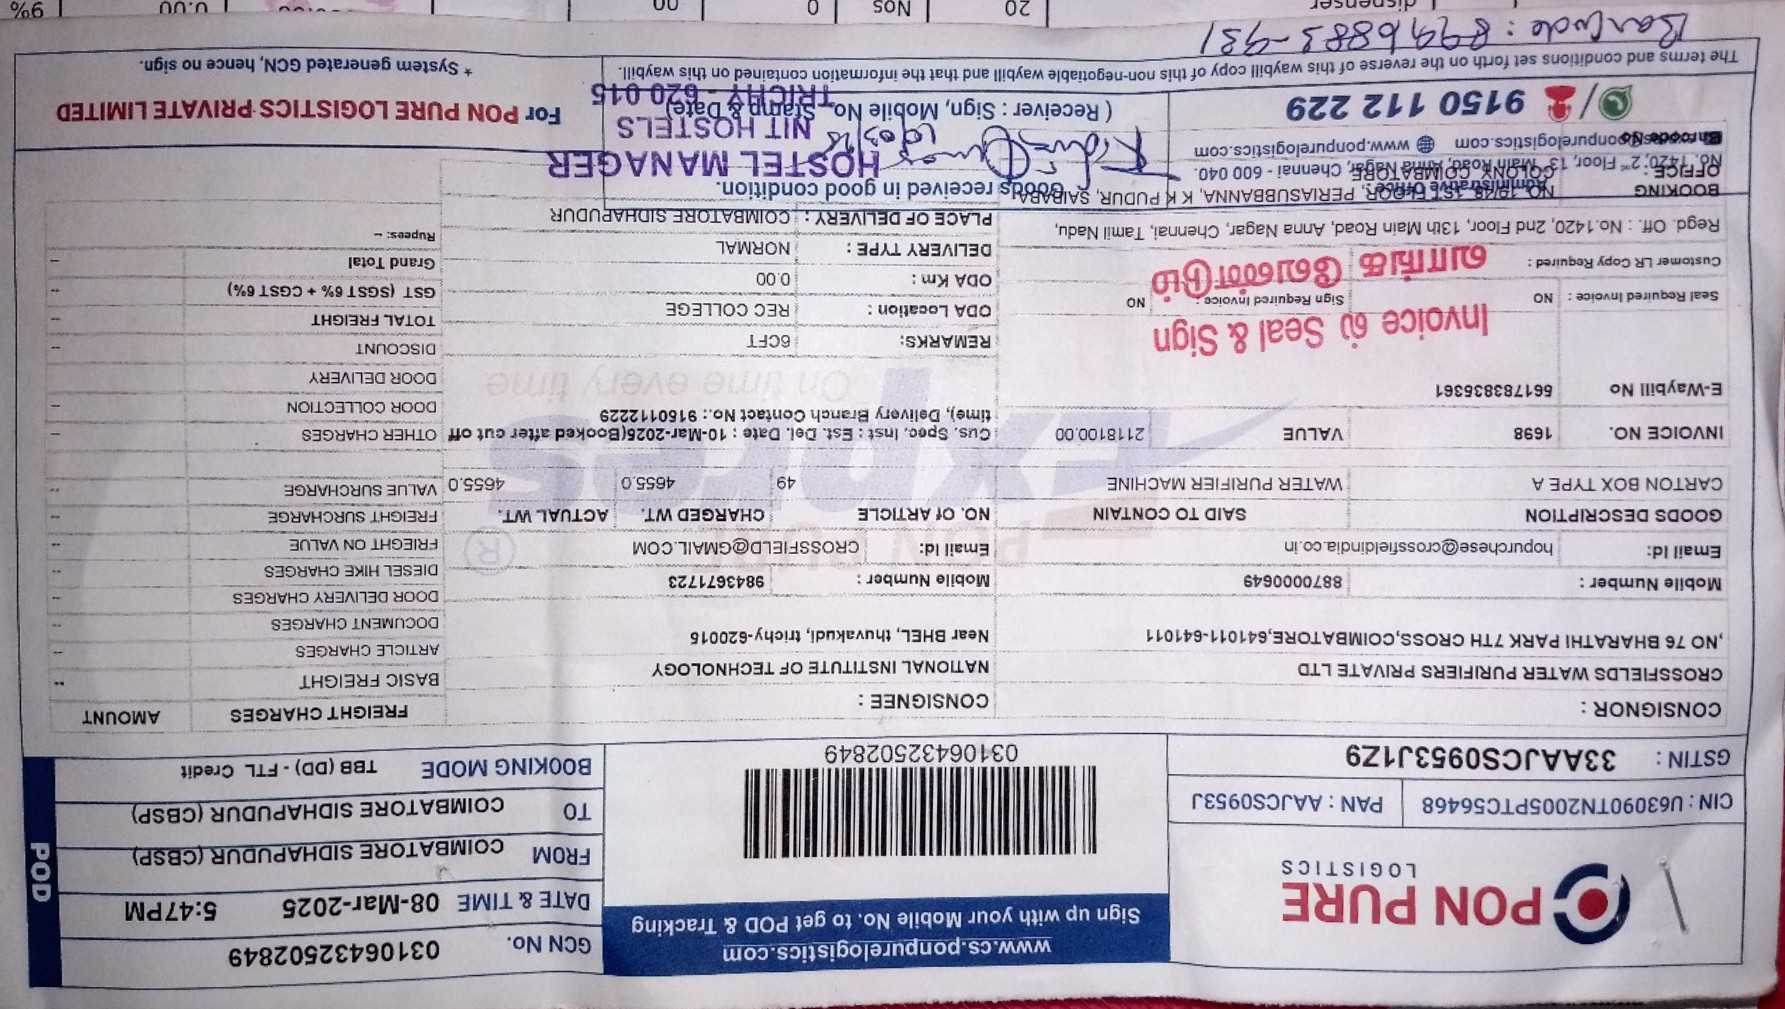 PON PURE
LOGISTICS
CIN : U63090TN2005PTC56468
PAN : AAJCS0953J
GSTIN : 33AAJCS0953J1Z9
www.cs.ponpurelogistics.com
Sign up with your Mobile No. to get POD & Tracking
03106432502849
GCN No. 03106432502849
DATE & TIME 08-Mar-2025 5:47PM
FROM COIMBATORE SIDHAPUDUR (CBSP)
TO COIMBATORE SIDHAPUDUR (CBSP)
BOOKING MODE TBB (DD) - FTL Credit
POD
CONSIGNOR :
CROSSFIELDS WATER PURIFIERS PRIVATE LTD
,NO 76 BHARATHI PARK 7TH CROSS,COIMBATORE,641011-641011
Mobile Number : 8870000649
Email Id: hopurchese@crossfieldindia.co.in
CONSIGNEE :
NATIONAL INSTITUTE OF TECHNOLOGY
Near BHEL, thuvakudi, trichy-620015
Mobile Number : 9843671723
Email Id: CROSSFIELD@GMAIL.COM
GOODS DESCRIPTION SAID TO CONTAIN NO. Of ARTICLE CHARGED WT. ACTUAL WT.
CARTON BOX TYPE A WATER PURIFIER MACHINE 49 4655.0 4655.0
INVOICE NO. 1698 VALUE 2118100.00
E-Waybill No 561783835361
Cus. Spec. Inst : Est. Del. Date : 10-Mar-2025(Booked after cut off
time), Delivery Branch Contact No.: 9150112229
PON PURE
Expres
®
On time every time
Invoice ல் Seal & Sign
வாங்க வேண்டும்
Seal Required Invoice : NO Sign Required Invoice : NO
Customer LR Copy Required :
REMARKS: 6CFT
ODA Location : REC COLLEGE
ODA Km : 0.00
DELIVERY TYPE : NORMAL
PLACE OF DELIVERY : COIMBATORE SIDHAPUDUR
FREIGHT CHARGES AMOUNT
BASIC FREIGHT --
ARTICLE CHARGES --
DOCUMENT CHARGES --
DOOR DELIVERY CHARGES --
DIESEL HIKE CHARGES --
FRIEGHT ON VALUE --
FREIGHT SURCHARGE --
VALUE SURCHARGE --
OTHER CHARGES --
DOOR COLLECTION --
DOOR DELIVERY --
DISCOUNT --
TOTAL FREIGHT --
GST (SGST 6% + CGST 6%) --
Grand Total --
Rupees: --
Regd. Off. : No.1420, 2nd Floor, 13th Main Road, Anna Nagar, Chennai, Tamil Nadu,
BOOKING OFFICE : NO. 19/48, 1ST FLOOR, PERIASUBBANNA, K K PUDUR, SAIBABA COLONY, COIMBATORE
Administrative Office :
No. 1420, 2nd Floor, 13th Main Road, Anna Nagar, Chennai - 600 040.
ponpurelogistics.com www.ponpurelogistics.com
9150 112 229
Goods received in good condition.
HOSTEL MANAGER
NIT HOSTELS
TRICHY - 620 015
( Receiver : Sign, Mobile No., Stamp & Date)
For PON PURE LOGISTICS PRIVATE LIMITED
The terms and conditions set forth on the reverse of this waybill copy of this non-negotiable waybill and that the information contained on this waybill.
* System generated GCN, hence no sign.
Barcode : 8996883-931
dispenser 20 Nos 0 00 0.00 9%